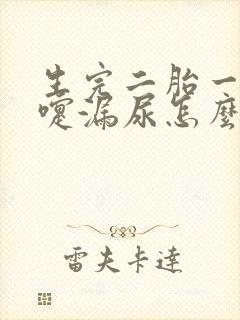 生完二胎一
嚏漏尿怎麼
雷夫卡達